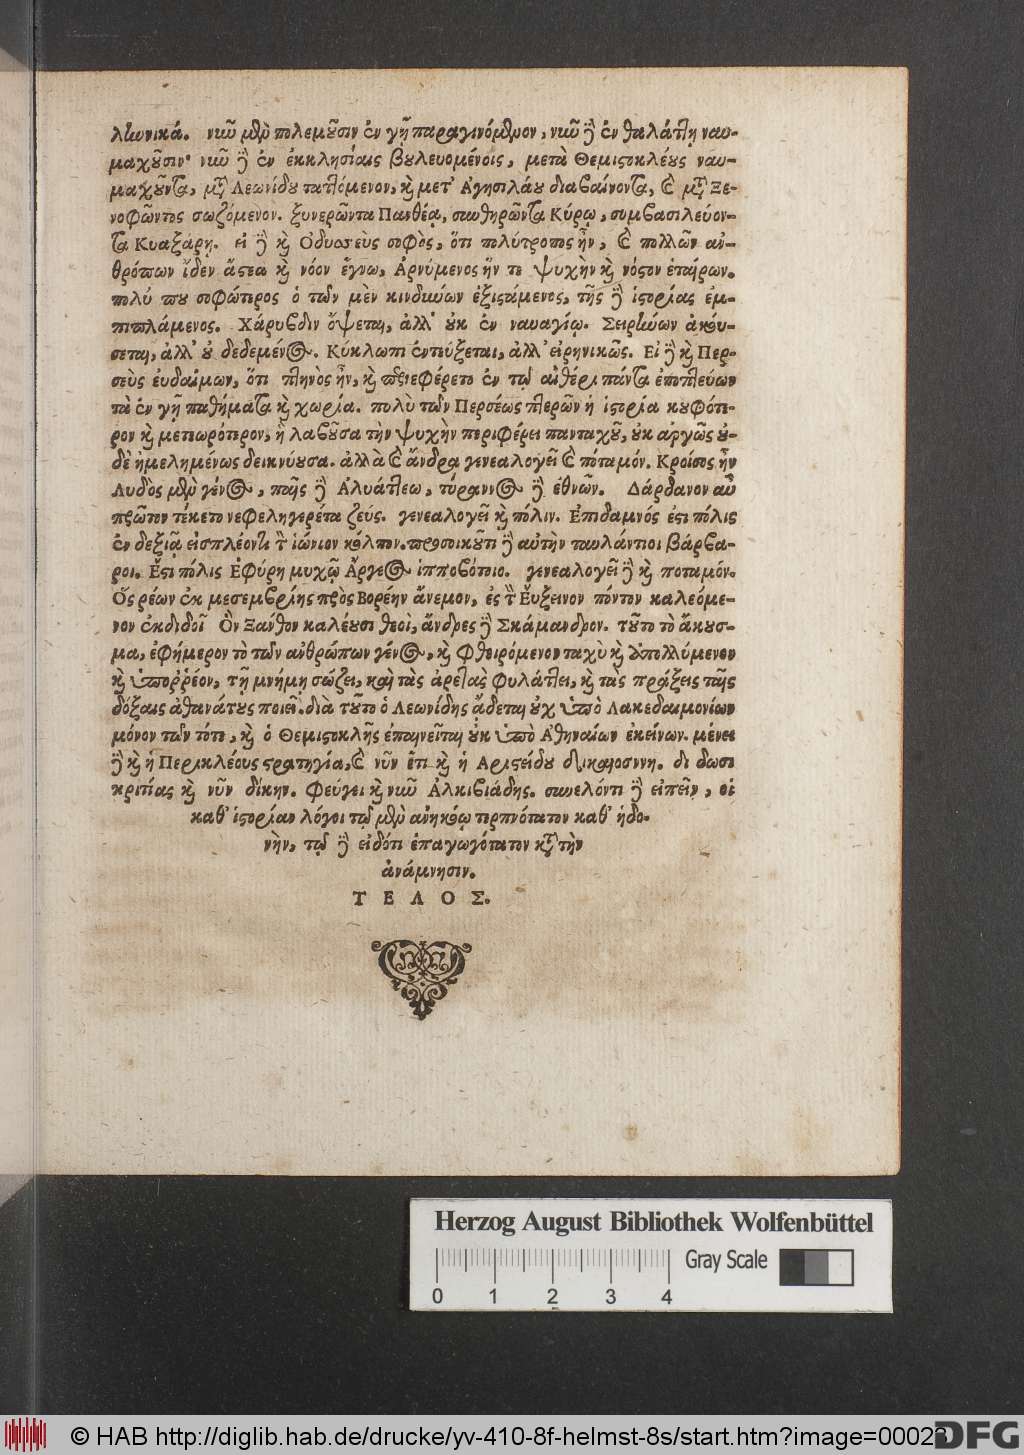 λωνικά. νῦν μὲν πολεμοῦσιν ἐν γῇ παραγινόμενον, νῦν δὲ ἐν θαλάττῃ ναυ-
μαχοῦσιν· νῦν δὲ ἐν ἐκκλησίαις βουλευομένοις, μετὰ Θεμιστοκλέους ναυ-
μαχοῦντα, μετὰ Λεωνίδου ταττόμενον, καὶ μετ' Ἀγησιλάου διαβαίνοντα, καὶ μετὰ Ξε-
νοφῶντος σωζόμενον. ξυνερῶντα Πανθέᾳ, συνθηρῶντα Κύρῳ, συμβασιλεύον-
τα Κυαξάρῃ. εἰ δὲ καὶ Ὀδυσσεὺς σοφὸς, ὅτι πολύτροπος ἦν, καὶ πολλῶν ἀν-
θρώπων ἴδεν ἄστεα καὶ νόον ἔγνω, Ἀρνύμενος ἥν τε ψυχὴν καὶ νόστον ἑταίρων.
πολύ που σοφώτερος ὁ τῶν μὲν κινδύνων ἐξιστάμενος, τῆς δὲ ἱστορίας ἐμ-
πιπλάμενος. Χάρυβδιν ὄψεται, ἀλλ' οὐκ ἐν ναυαγίῳ. Σειρήνων ἀκού-
σεται, ἀλλ' οὐ δεδεμένος. Κύκλωπι ἐντεύξεται, ἀλλ' εἰρηνικῶς. Εἰ δὲ καὶ Περ-
σεὺς εὐδαίμων, ὅτι πτηνὸς ἦν, καὶ περιεφέρετο ἐν τῷ αἰθέρι πάντα ἐποπτεύων
τὰ ἐν γῇ παθήματα καὶ χωρία. πολὺ τῶν Περσέως πτερῶν ἡ ἱστορία κουφότε-
ρον καὶ μετεωρότερον, ἡ λαβοῦσα τὴν ψυχὴν περιφέρει πανταχοῦ, οὐκ ἀργῶς οὐ-
δὲ ἠμελημένως δεικνύουσα. ἀλλὰ καὶ ἄνδρα γενεαλογεῖ καὶ πόταμόν. Κροῖσος ἦν
Λυδὸς μὲν γένος, παῖς δὲ Ἀλυάττεω, τύραννος δὲ ἐθνῶν. Δάρδανον αὖ
πρῶτον τέκετο νεφεληγερέτα ζεύς. γενεαλογεῖ καὶ πόλιν. Ἐπιδαμνός ἐστι πόλις
ἐν δεξιᾷ εἰσπλέοντι τὸν ἰώνιον κόλπον. προσοικοῦσι δὲ αὐτὴν ταυλάντιοι βάρβα-
ροι. Ἔστι πόλις Ἐφύρη μυχῷ Ἄργεος ἱπποβότοιο. γενεαλογεῖ δὲ καὶ ποταμόν.
Ὅς ῥέων ἐκ μεσεμβρίης πρὸς Βορέην ἄνεμον, ἐς τὸν Εὔξεινον πόντον καλεόμε-
νον ἐκδιδοῖ Ὃν Ξανθον καλέουσι θεοὶ, ἄνδρες δὲ Σκάμανδρον. τοῦτο τὸ ἄκουσ-
μα, ἐφήμερον τὸ τῶν ἀνθρώπων γένος, καὶ φθειρόμενον ταχὺ καὶ ἀπολλύμενον
καὶ ὑπορρέον, τῇ μνήμῃ σώζει, καὶ τὰς ἀρετὰς φυλάττει, καὶ τὰς πράξεις ταῖς
δόξαις ἀθανάτους ποιεῖ. διὰ τοῦτο ὁ Λεωνίδης ᾄδεται οὐχ ὑπὸ Λακεδαιμονίων
μόνον τῶν τότε, καὶ ὁ Θεμιστοκλῆς ἐπαινεῖται οὐκ ὑπὸ Ἀθηναίων ἐκείνων. μένει
δὲ καὶ ἡ Περικλέους στρατηγία, καὶ νῦν ἔτι καὶ ἡ Αριστείδου δικαιοσύνη. δίδωσι
κριτίας καὶ νῦν δίκην. Φεύγει καὶ νῦν Ἀλκιβιάδης. συνελόντι δὲ εἰπεῖν, οἱ
καθ' ἱστορίαν λόγοι τῷ μὲν ἀνηκόῳ τερπνότατον καθ' ἡδο-
νὴν, τῷ δὲ εἰδότι ἐπαγωγότατον κατὰ τὴν
ἀνάμνησιν.
ΤΕΛΟΣ.
Herzog August Bibliothek Wolfenbüttel
Gray Scale
0 1 2 3 4
© HAB http://diglib.hab.de/drucke/yv-410-8f-helmst-8s/start.htm?image=00023
DFG